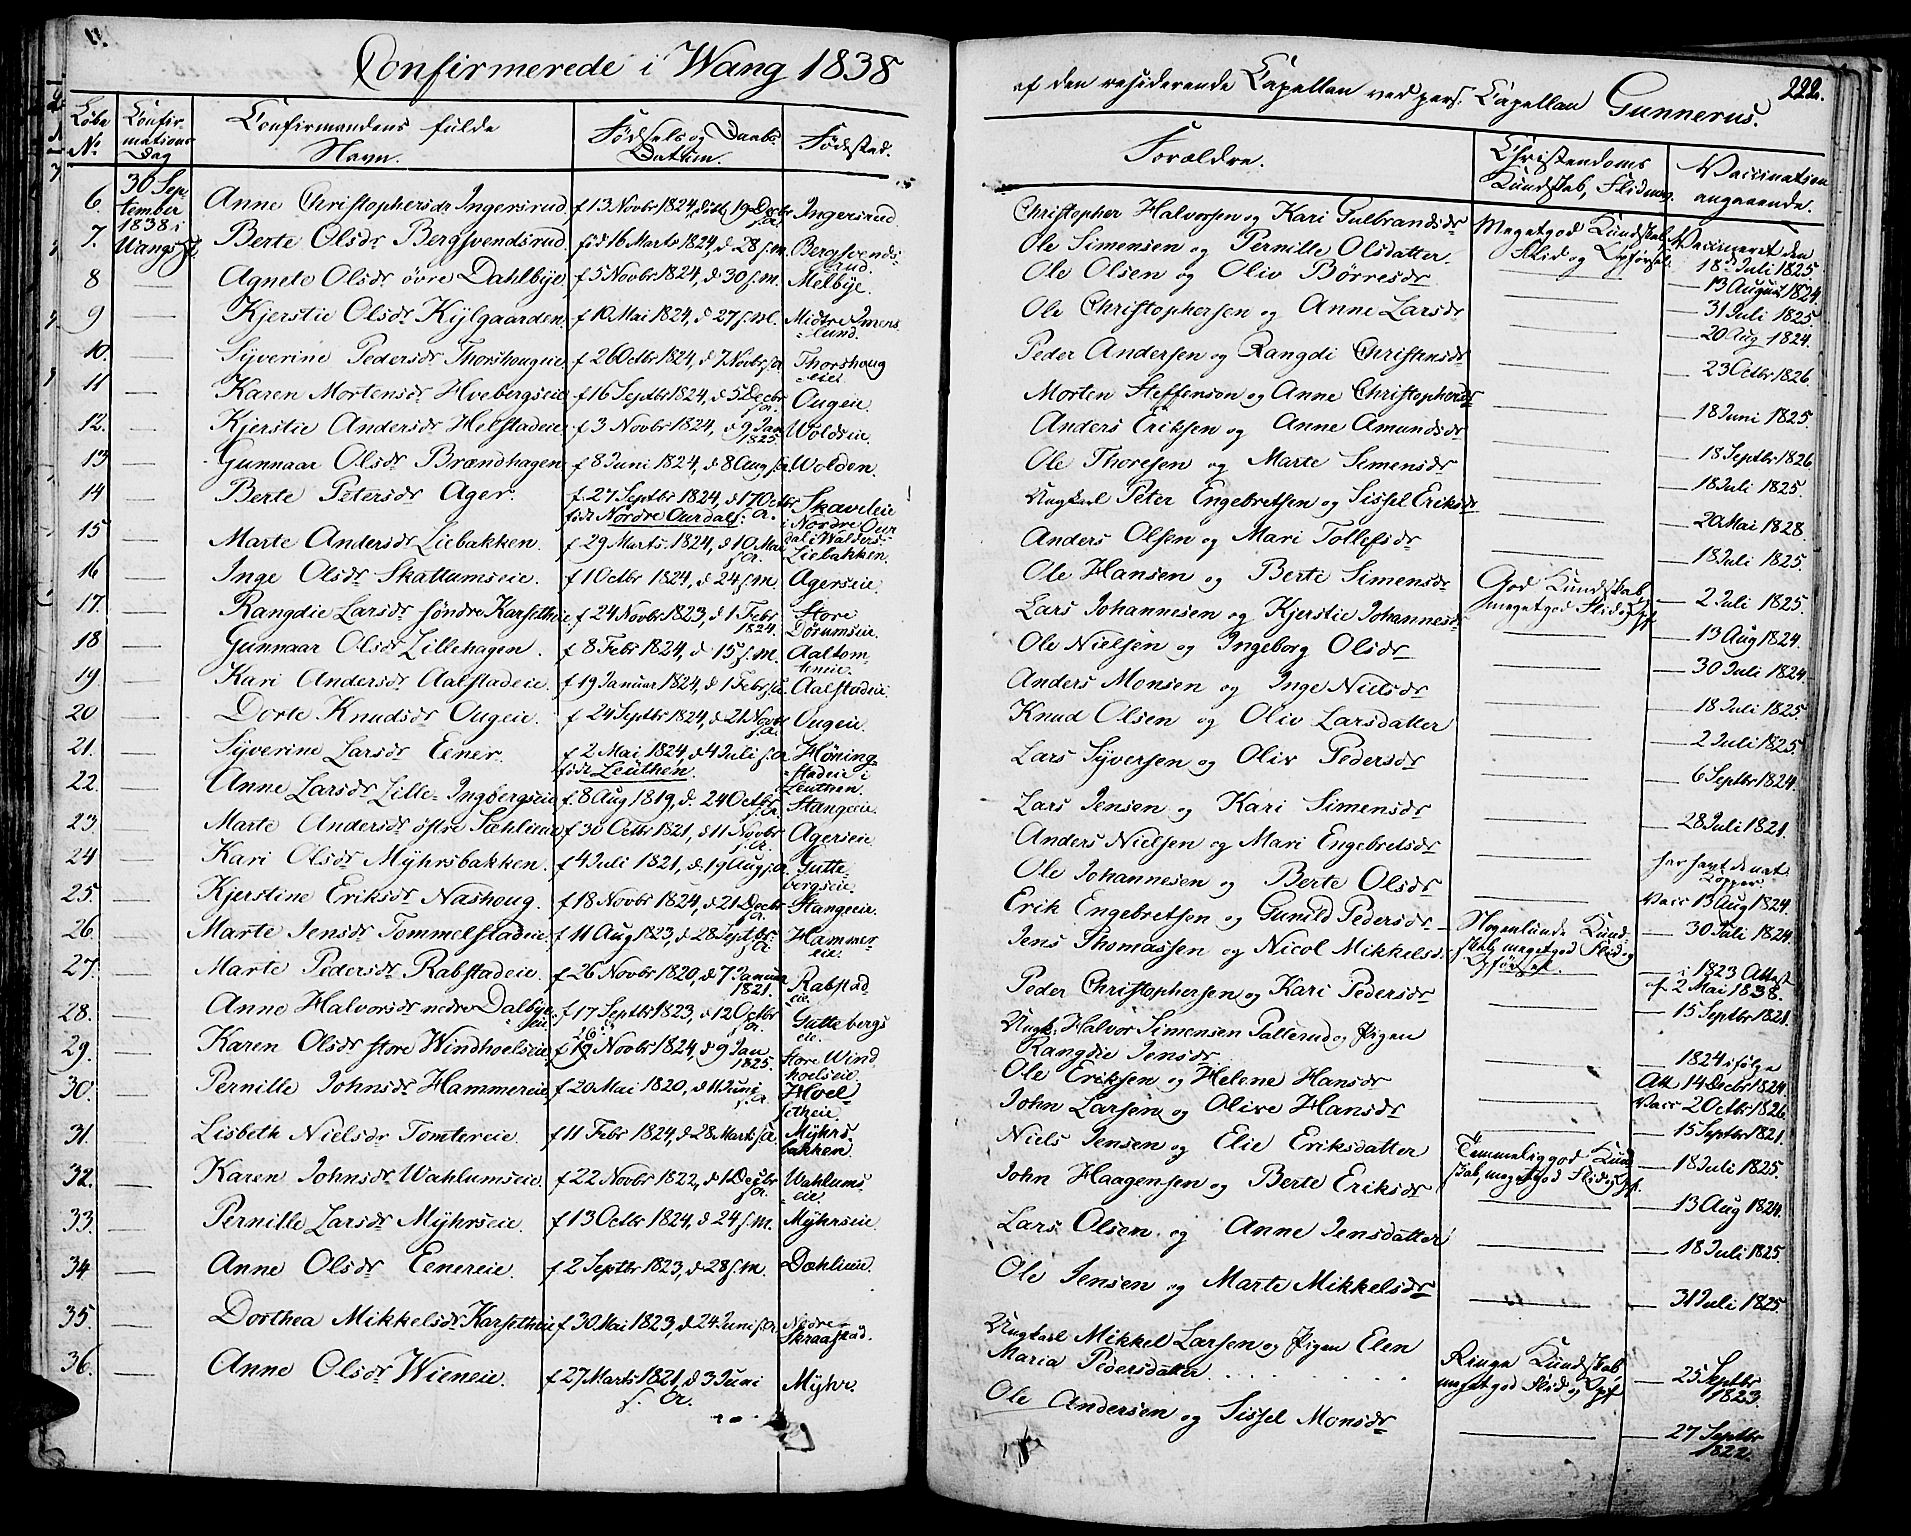 Confirmerede i Wang 1838
Løbe No.
Confirmations Dag
Confirmandens fulde Navn.
Fødsels og Daabs Datum.
Fødested.
6. 30 September 1838 i Anne Christophersdr Ingersrud f 13 Novbr 1824, 19 Decbr s.a. Ingersrud.
7. Berte Olsdr Bergsvendsrud fød 16 Marts 1824, d 28 s.m. Bergsvendsrud.
8 — Agnete Olsdr övre Dahlbye f 5 Novbr 1824, d 30 s.m. Melbye.
9 — Kjerstie Olsdr Kylgaarden f 10 Mai 1824, d 27 s.m. Midtre Imenslund.
10. — Syverine Pedersdr Thorshougeie f 26 Octbr 1824, d 7 Novbr s.a Thorshougeie
11 — Karen Mortensdr Hvebergseie f 16 Septbr 1824, d 5 Decbr s.a. Ougeie.
12. — Kjerstie Andersdr Helstadeie f 3 Novbr 1824, d 9 Jan 1825. Woldseie.
13 — Gunnaar Olsdr Brændhagen f 8 Juni 1824, d 8 Aug s.a Wolden.
14 — Berte Petersdr Ager. f 27 Septbr 1824, d 17 Octbr s.a. i Nordre Ourdal Skaveleie i Nordre Ourdal i Walders
15 — Marte Andersdr Liebakken. f 29 Marts 1824, d 10 Mai s.a. Liebakken.
16 — Inge Olsdr Skattumseie. f 1 Octbr 1824, d 24 s.m. Agerseie.
17. — Rangdie Larsdr söndre Karsetheie f 24 Novbr 1823, d 1 Febr 1824. Store Dørumseie.
18 — Gunnaar Olsdr Lillehagen. f 8 Febr 1824, d 15 s.m. Aaltomteneie.
19. — Kari Andersdr Aalstadeie. f 19 Januar 1824, d 1 Febr s.a. Aalstadeie
20 — Dorte Knudsdr Ougeie. f 24 Septbr 1824, d 21 Novbr s.a. Ougeie.
21. — Syverine Larsdr Eener. f 2 Mai 1824, d 4 Juli s.a. Leuthen. Høningstadeie i Leuthen.
22. — Anne Larsdr Lille-Ingbergseie f. 8 Aug 1819, d. 24 Octbr s.a. Stangeeie.
23. — Marte Andersdr østre Sæhlieeie f 30 Octbr 1821, d 11 Novbr s.a. Agerseie.
24 — Kari Olsdr Myhrsbakken. f 4 Juli 1821, d 19 Aug s.a. Guttebergseie.
25. — Kjerstine Eriksdr Nashoug. f 18 Novbr 1824, d 21 Decbr s.a. Stangeeie.
26. — Marte Jensdr Tommelstadeie f 11 Aug 1823, d 28 Septbr s.a. Hammereie.
27. — Marte Pedersdr Rabstadeie. f 26 Novbr 1820, d 7 Januar 1821. Rabstadeie.
28. — Anne Halvorsdr nedre Dalbyeseie f 17 Septbr 1823, d 12 Octbr s.a. Guttebergseie.
29. — Karen Olsdr store Windhoelseie f 16 Novbr 1824, d 9 Jan 1825. Store Windhoelseie.
30. — Pernille Johnsdr Hammereie f 20 Mai 1820, d 11 Juni s.a. Hoelsetheie.
31. — Lisbeth Nielsdr Tomtereie. f 11 Febr 1824, d 28 Marts s.a Myhrsbakken.
32. — Karen Johnsdr Wahlumseie. f 22 Novbr 1822, d 1 Decbr s.a. Wahlumseie.
33. — Pernille Larsdr Myhrseie. f 13 Octbr 1824, d 24 s.m. Myhrseie.
34 — Anne Olsdr Eenereie. f 2 Septbr 1823, d 28 s.m. Dæhlieeie.
35. — Dorthea Mikkelsdr Karsetheie f 30 Mai 1823, d 24 Juni s.a. Nedre Skraastad.
36. — Anne Olsdr Wieneie. f 27 Marts 1821, d 3 Juni s.a. Myhr.
af den residerende Capellan ved pers. Capellan Gunnerus. 222.
Forældre.
Christendoms Kundskab, Flid m.v.
Vaccination angaaende.
Christopher Halvorsen og Kari Gulbrandsdr Megetgod Kundskab Flid og Opførsel. Vaccineret den 18 Juli 1825
Ole Simensen og Pernille Olsdatter. — 13 August 1824.
Ole Olsen og Oliv Børresdr — 31 Juli 1825.
Ole Christophersen og Anne Larsdr — 20 Aug 1824.
Peder Andersen og Rangdi Christensdr — 23 Octbr 1826.
Morten Steffensen og Anne Christophersdr — 18 Juni 1825.
Anders Eriksen og Anne Amundsdr — 18 Septbr 1826
Ole Thoresen og Marte Simensdr — 18 Juli 1825.
Ungkarl Peter Engebretsen og Sissel Eriksdr — 20 Mai 1828.
Anders Olsen og Mari Tollefsdr — 18 Juli 1825.
Ole Hansen og Berte Simensdr God Kundskab, megetgod Flid og Opf. — 2 Juli 1825.
Lars Johannesen og Kjerstie Johannesdr — 13 Aug 1824.
Ole Nielsen og Ingeborg Olsdr — 30 Juli 1824.
Anders Monsen og Inge Nielsdr — 18 Juli 1825.
Knud Olsen og Oliv Larsdatter — 2 Juli 1825
Lars Syversen og Oliv Pedersdr — 6 Septbr 1824.
Lars Jensen og Kari Simensdr — 28 Juli 1821.
Anders Nielsen og Mari Engebretsdr har havt de nat. Kopper.
Ole Johannesen og Berte Olsdr Vacc 13 Aug 1824.
Erik Engebretsen og Gunild Pedersdr Nogenlunde Kundskab, megetgod Flid og Opførsel. — 30 Juli 1824.
Jens Thomassen og Nicol Mikkelsd. — i 1823 Attest af 2 Mai 1838.
Peder Christophersen og Kari Pedersdr — 15 Septbr 1821.
Ungk. Halvor Simensen Pallerud og Pigen Rangdie Jensdr — 1824 ifølge Att 14 Decbr 1824
Ole Eriksen og Helene Hansdr Vacc 2 Octbr 1826.
John Larsen og Olive Hansdr — 15 Septbr 1821.
Niels Jensen og Elie Eriksdatter Temmeliggod Kundskab, megetgod Flid og Opf. — 18 Juli 1825.
John Haagensen og Berte Eriksdr — 13 Aug 1824.
Lars Olsen og Anne Jensdatter — 18 Juli 1825.
Ole Jensen og Marte Mikkelsdr — 31 Juli 1825
Ungkarl Mikkel Larsen og Pigen Elen Maria Pedersdatter Ringe Kundskab, megetgod Flid og Opf — 25 Septbr 1823.
Ole Andersen og Sissel Monsdr — 27 Septbr 1822.